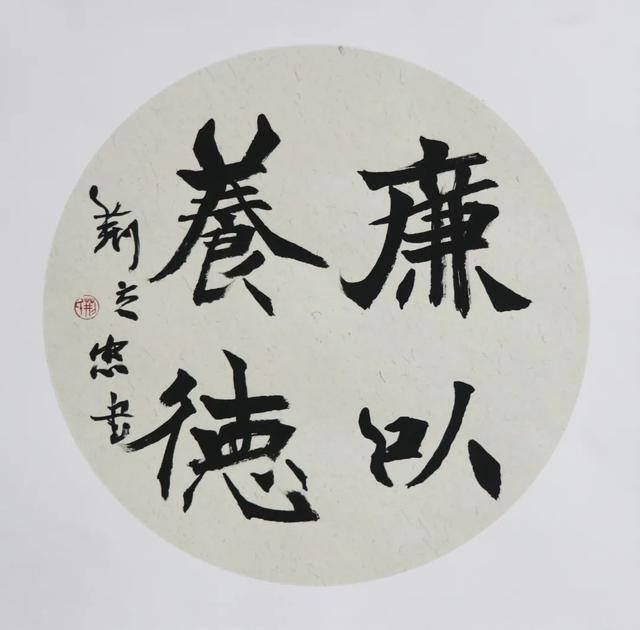 廉以
養德
荆之忠书